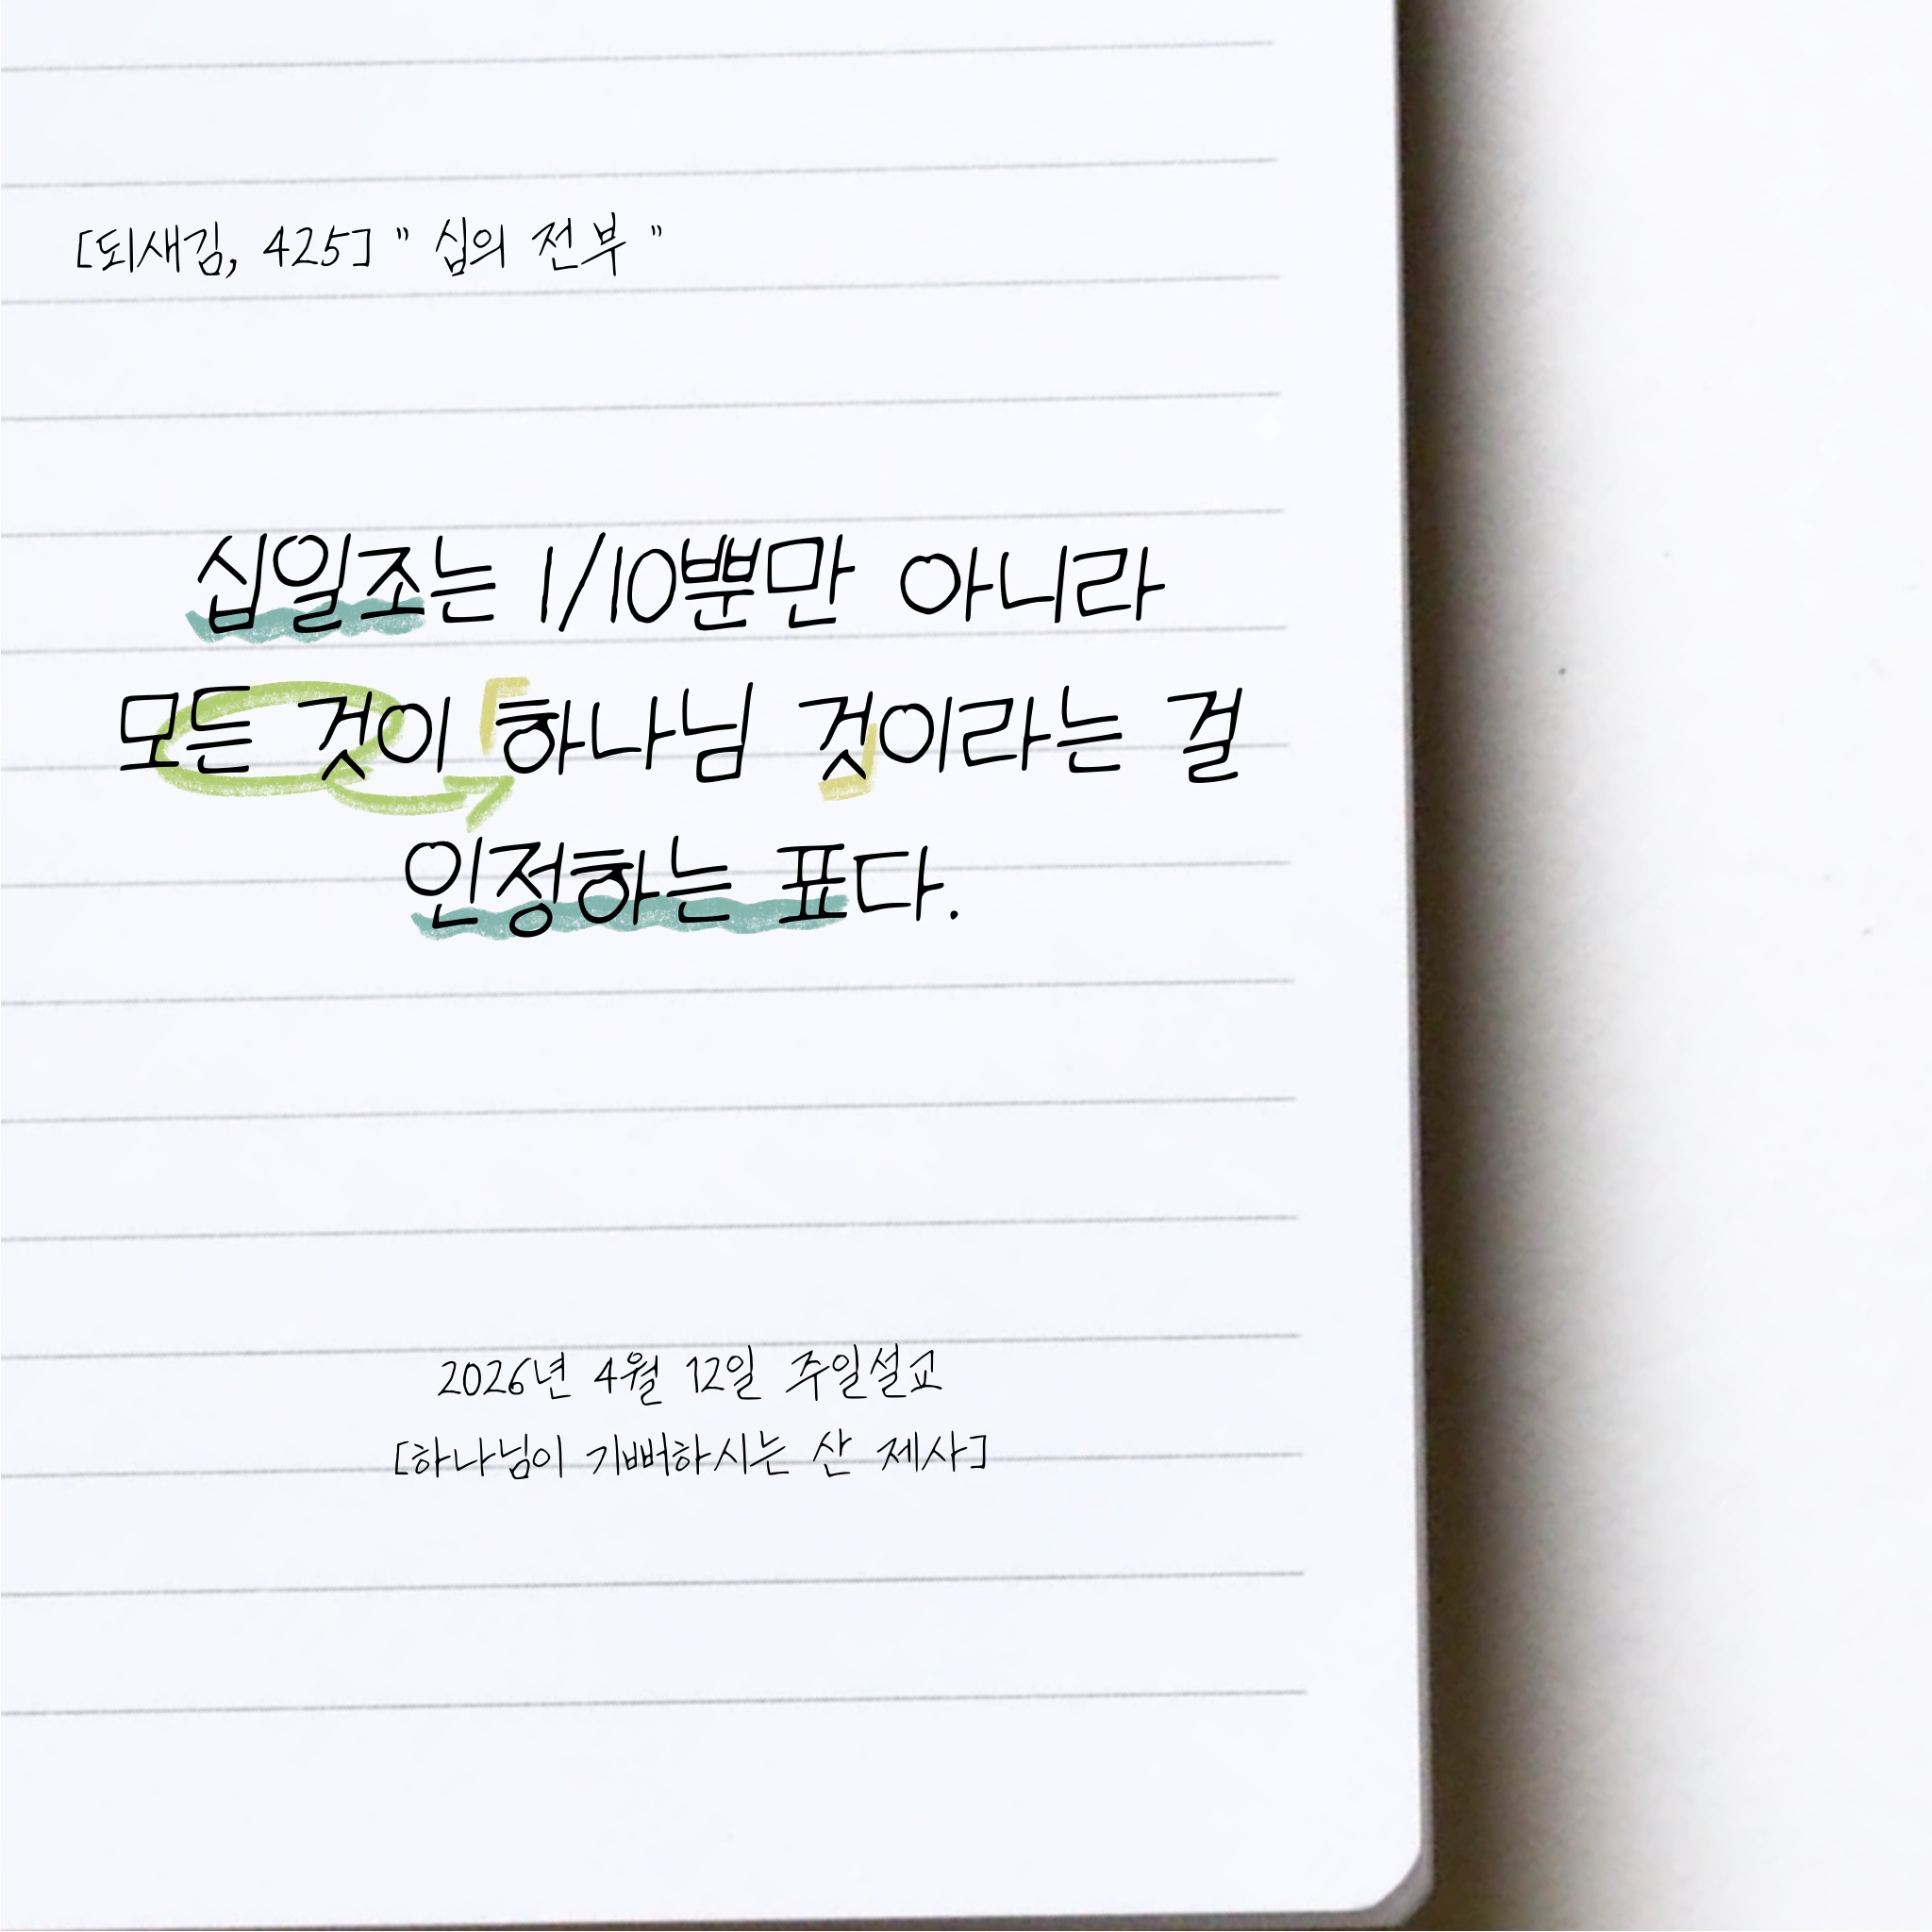 [되새김, 425] " 십의 전부 "
십일조는 1/10뿐만 아니라
모든 것이 「하나님 것」이라는 걸
인정하는 표다.
2026년 4월 12일 주일설교
[하나님이 기뻐하시는 산 제사]